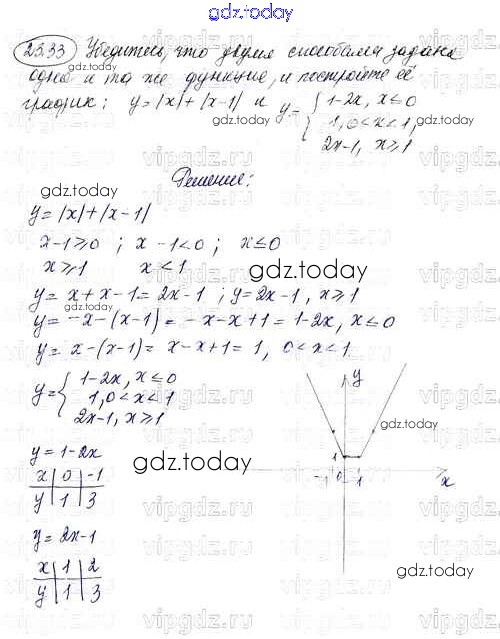 gdz.today
25.33 Убедитесь, что двумя способами задана
одна и та же функция, и постройте её
график: y=|x|+|x-1| и y={ 1-2x, x≤0
1, 0<x<1,
2x-1, x≥1
gdz.today
gdz.today
Решение:
y=|x|+|x-1|
x-1≥0 ; x-1<0 ; x≤0
x≥1 x<1
gdz.today
y= x+x-1= 2x-1 ; y=2x-1, x≥1
gdz.today
y= -x-(x-1)= -x-x+1= 1-2x, x≤0
y= x-(x-1)= x-x+1= 1, 0<x<1
y={ 1-2x, x≤0
1, 0<x<1
2x-1, x≥1
y
1
-1 0 1
x
gdz.today
y=1-2x
gdz.today
x | 0 | -1
y | 1 | 3
y= 2x-1
x | 1 | 2
y | 1 | 3
gdz.today
vipgdz.ru